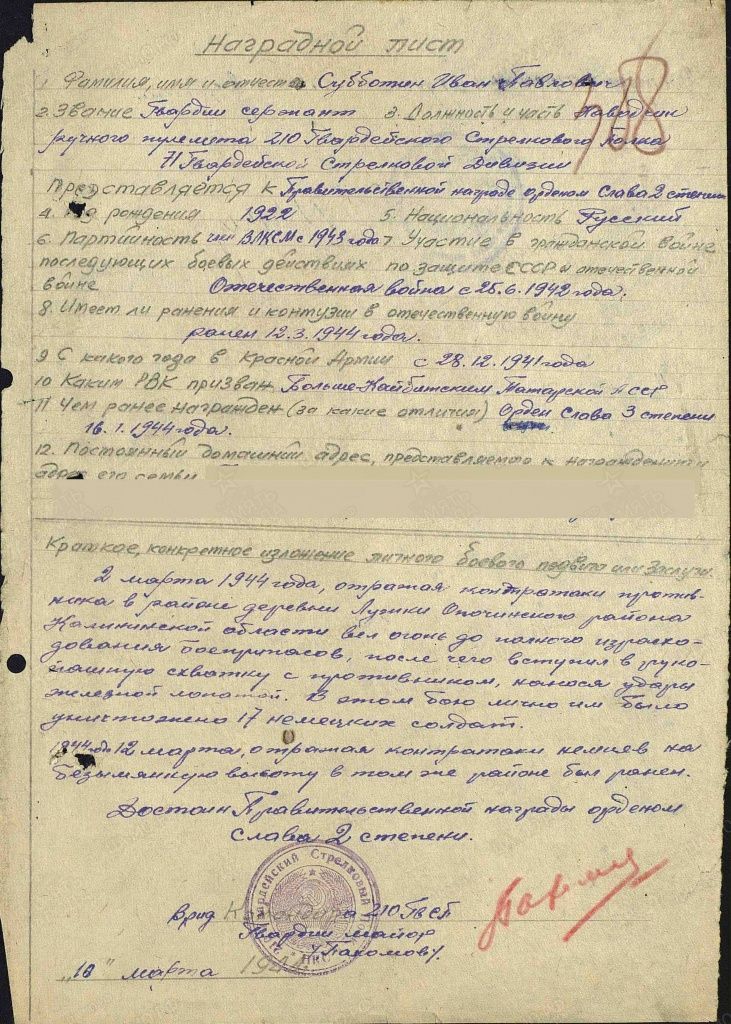 Наградной лист
588
1. Фамилия, имя и отчество Субботин Иван Павлович
2. Звание Гвардии сержант 3. Должность и часть Наводчик
ручного пулемета 210 Гвардейского Стрелкового Полка
71 Гвардейской Стрелковой Дивизии
Представляется к Правительственной награде орденом Слава 2 степени
4. рождения 1922 5. Национальность Русский
6. Партийность чл. ВЛКСМ с 1943 года 7 Участие в гражданской войне
последующих боевых действиях по защите СССР и отечественной
войне Отечественная война с 25.6.1942 года.
8. Имеет ли ранения и контузии в отечественную войну
ранен 12.3.1944 года.
9 С какого года в Красной Армии с 28.12.1941 года
10 Каким РВК призван Больше-Кайбитским Татарской АССР
11 Чем ранее награжден (за какие отличия) Орден Слава 3 степени
16.1.1944 года.
12. Постоянный домашний адрес, представляемого к награждению и
адрес его семьи
Краткое, конкретное изложение личного боевого подвига или заслуги.
2 марта 1944 года, отражая контратаки против-
ника в районе деревни Лужки Опочинского района
Калининской области вел огонь до полного израсхо-
дования боеприпасов, после чего вступил в руко-
пашную схватку с противником, нанося удары
железной лопатой. В этом бою лично им было
уничтожено 17 немецких солдат.
1944 года 12 марта, отражая контратаки немцев на
безымянную высоту в том же районе был ранен.
Достоин Правительственной награды орденом
Слава 2 степени.
Гвардейский Стрелковый
НКО
Врид Командира 210 ГвСП
Гвардии майор
/Пахомов/.
"18" марта 1944